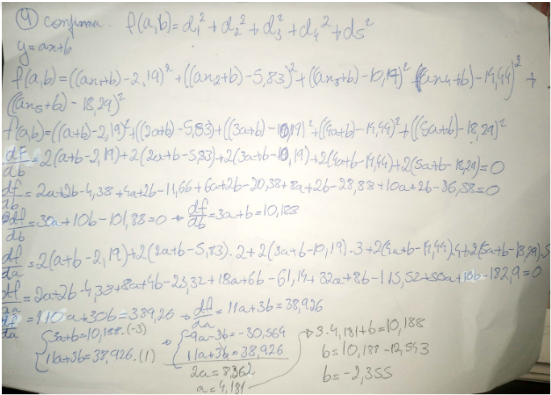 ④ confirma. f(a,b) = d₁² + d₂² + d₃² + d₄² + d₅²
y = ax+b
f(a,b) = ((ax₁+b)-2,19)² + ((ax₂+b)-5,83)² + ((ax₃+b)-10,19)² + ((ax₄+b)-14,44)² +
((ax₅+b)-18,29)²
f(a,b) = ((a+b)-2,19)² + ((2a+b)-5,83) + ((3a+b)-10,19)² + ((4a+b)-14,44)² + ((5a+b)-18,29)²
df/db = 2(a+b-2,19) + 2(2a+b-5,83) + 2(3a+b-10,19) + 2(4a+b-14,44) + 2(5a+b-18,29) = 0
df/db = 2a+2b-4,38+4a+2b-11,66+6a+2b-20,38+8a+2b-28,88+10a+2b-36,58=0
df/db = 30a+10b-101,88=0 → df/db = 3a+b=10,188
df/da = 2(a+b-2,19)+2(2a+b-5,83).2+2(3a+b-10,19).3+2(4a+b-14,44).4+2(5a+b-18,29).5
df/da = 2a+2b-4,38+8a+4b-23,32+18a+6b-61,14+32a+8b-115,52+50a+10b-182,9=0
df/da = 110a+30b=389,26 → df/da = 11a+3b=38,926
{3a+b=10,188.(-3) → {-9a-3b=-30,564 → 3.4,181+b=10,188
{11a+3b=38,926.(1) {11a+3b=38,926 b=10,188-12,543
2a=8,362 b=-2,355
a=4,181